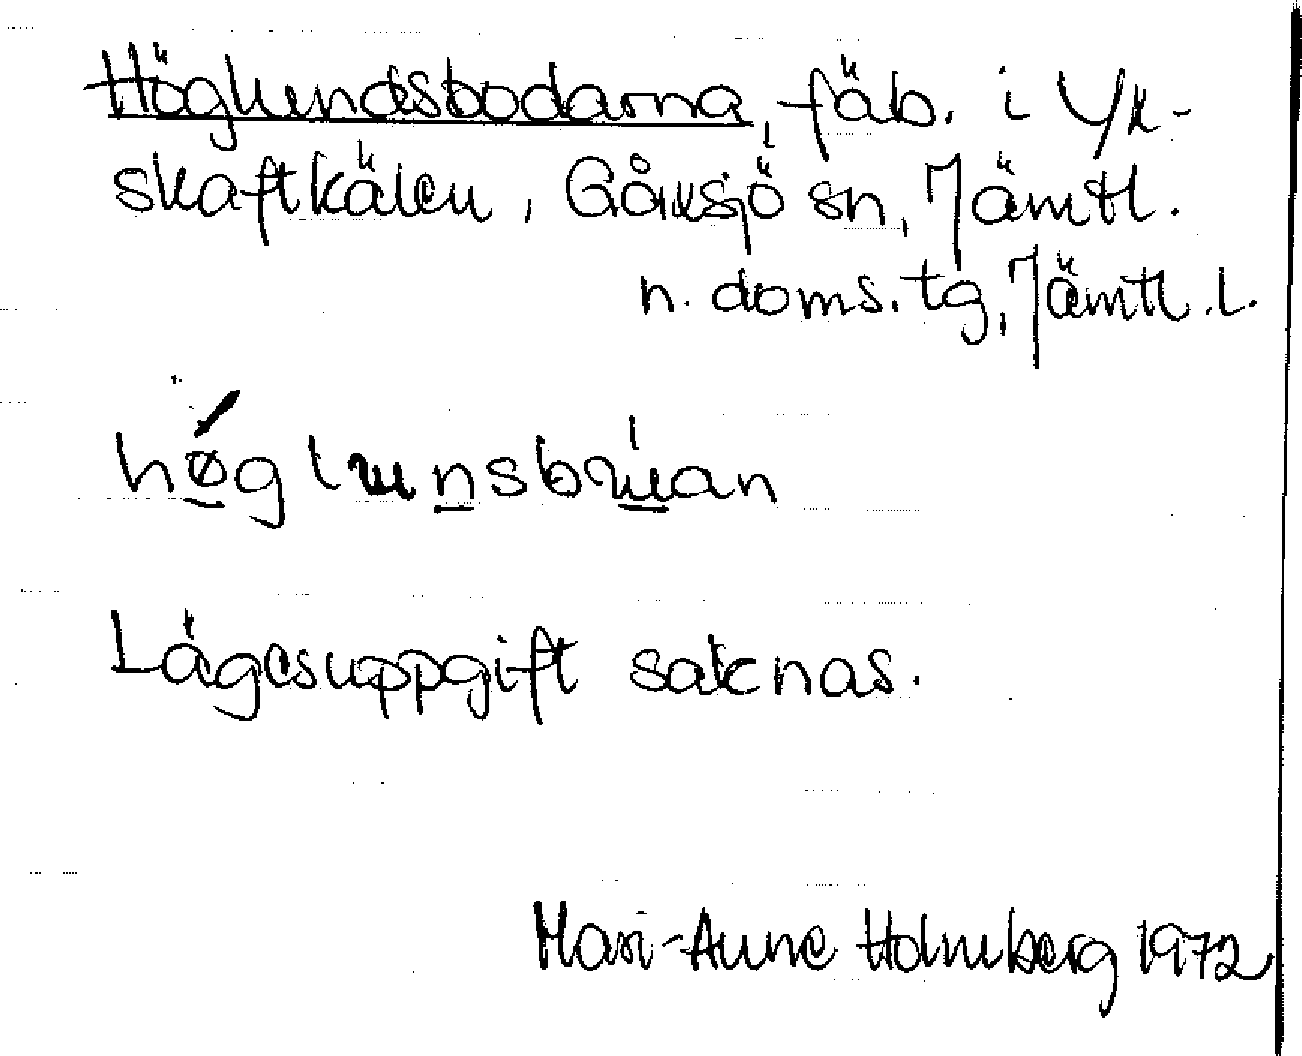 Höglundsbodarna, fäb. i Yx-
skaftkälen, Gåxsjö sn, Jämtl.
n. doms. tg, Jämtl. l.
Lägesuppgift saknas.
Mari-Anne Holmberg 1972